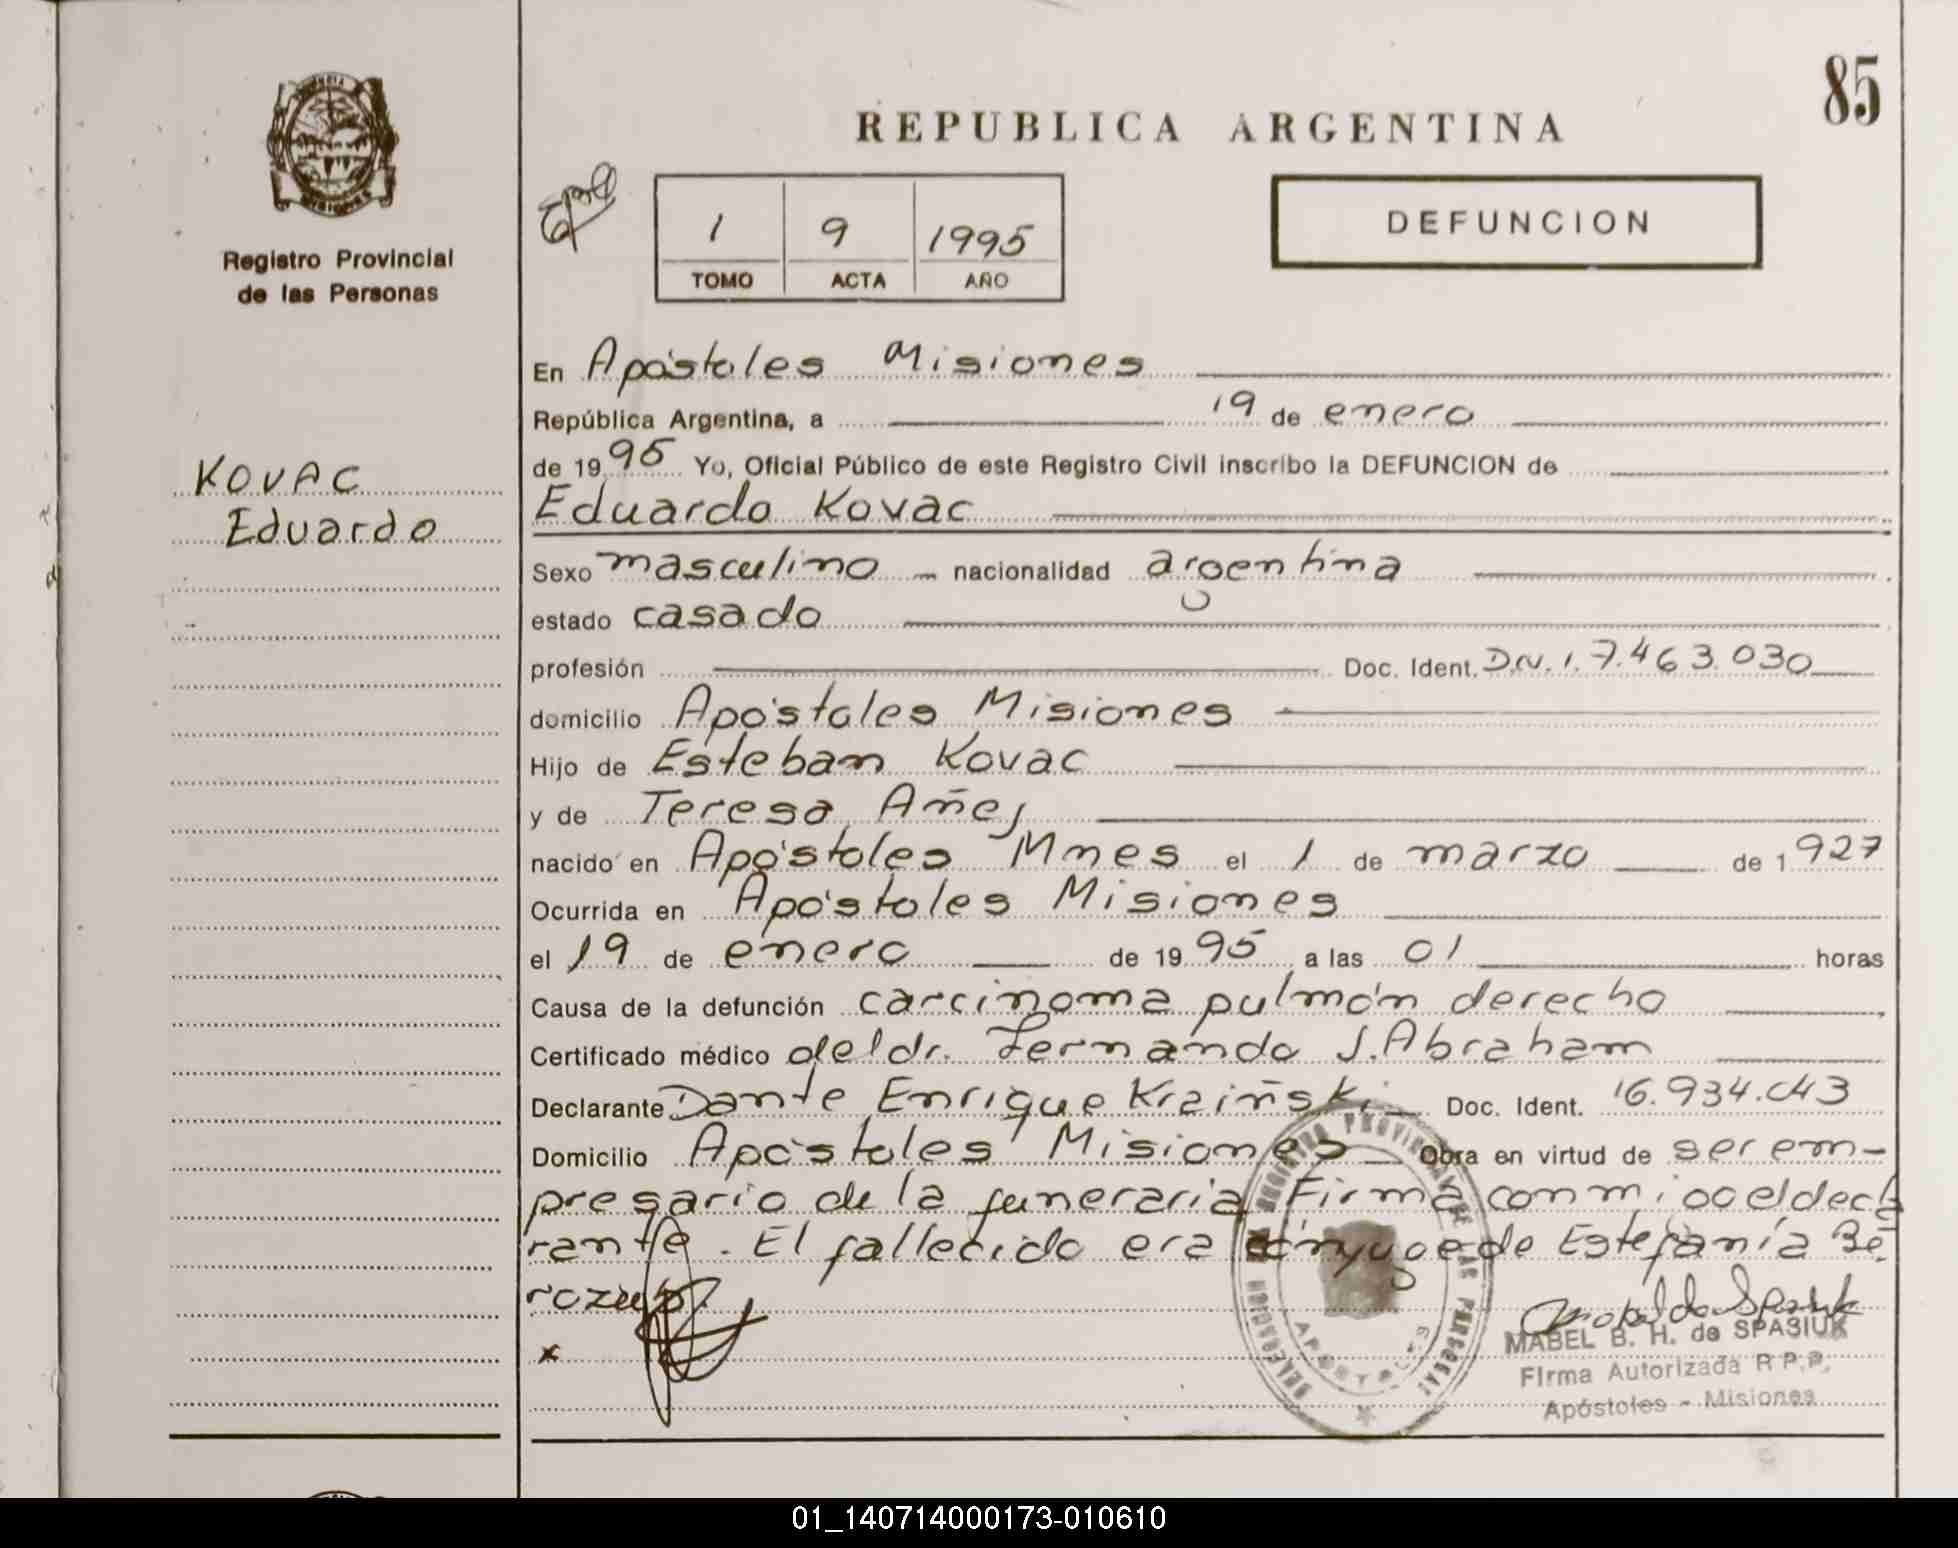 85
REPUBLICA ARGENTINA
DEFUNCION
1 9 1995
TOMO ACTA AÑO
MISIONES
Registro Provincial
de las Personas
KOVAC
Eduardo
En Apóstoles Misiones
República Argentina, a 19 de enero
de 1995 Yo, Oficial Público de este Registro Civil inscribo la DEFUNCION de
Eduardo Kovac
Sexo masculino nacionalidad argentina
estado casado
profesión Doc. Ident. D.N.I. 7.463.030
domicilio Apóstoles Misiones
Hijo de Esteban Kovac
y de Teresa Añej
nacido en Apóstoles Mnes el 1 de marzo de 1927
Ocurrida en Apóstoles Misiones
el 19 de enero de 1995 a las 01 horas
Causa de la defunción carcinoma pulmón derecho
Certificado médico del dr. Fernando J. Abraham
Declarante Dante Enrique Kraiñski Doc. Ident. 16.934.043
Domicilio Apóstoles Misiones Obra en virtud de ser em-
presario de la funeraria Firma conmigo el decla
rante. El fallecido era cónyuge de Estefanía Be
rozub.
x
MABEL B. H. de SPASIUK
Firma Autorizada R.P.P.
Apóstoles - Misiones
01_140714000173-010610